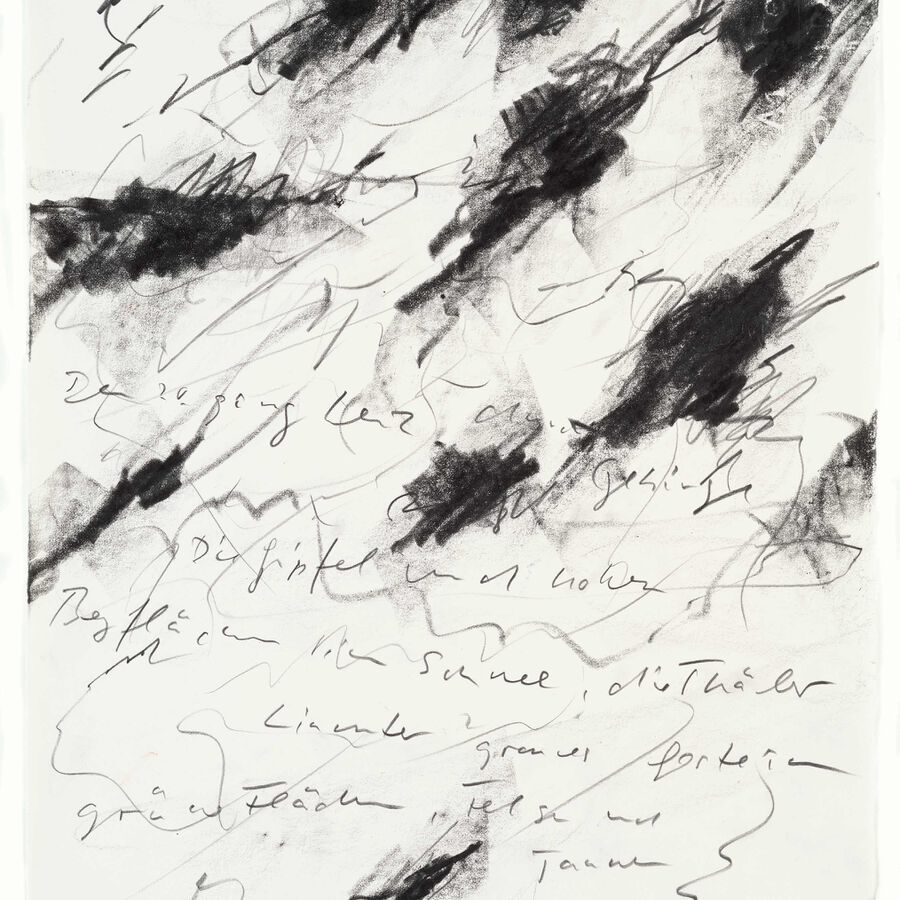 Den 20. ging Lenz durchs
Gebirge
Die Gipfel und hohen
Bergflächen im Schnee, die Thäler
hinunter graues Gestein
grüne Flächen, Felsen und
Tannen